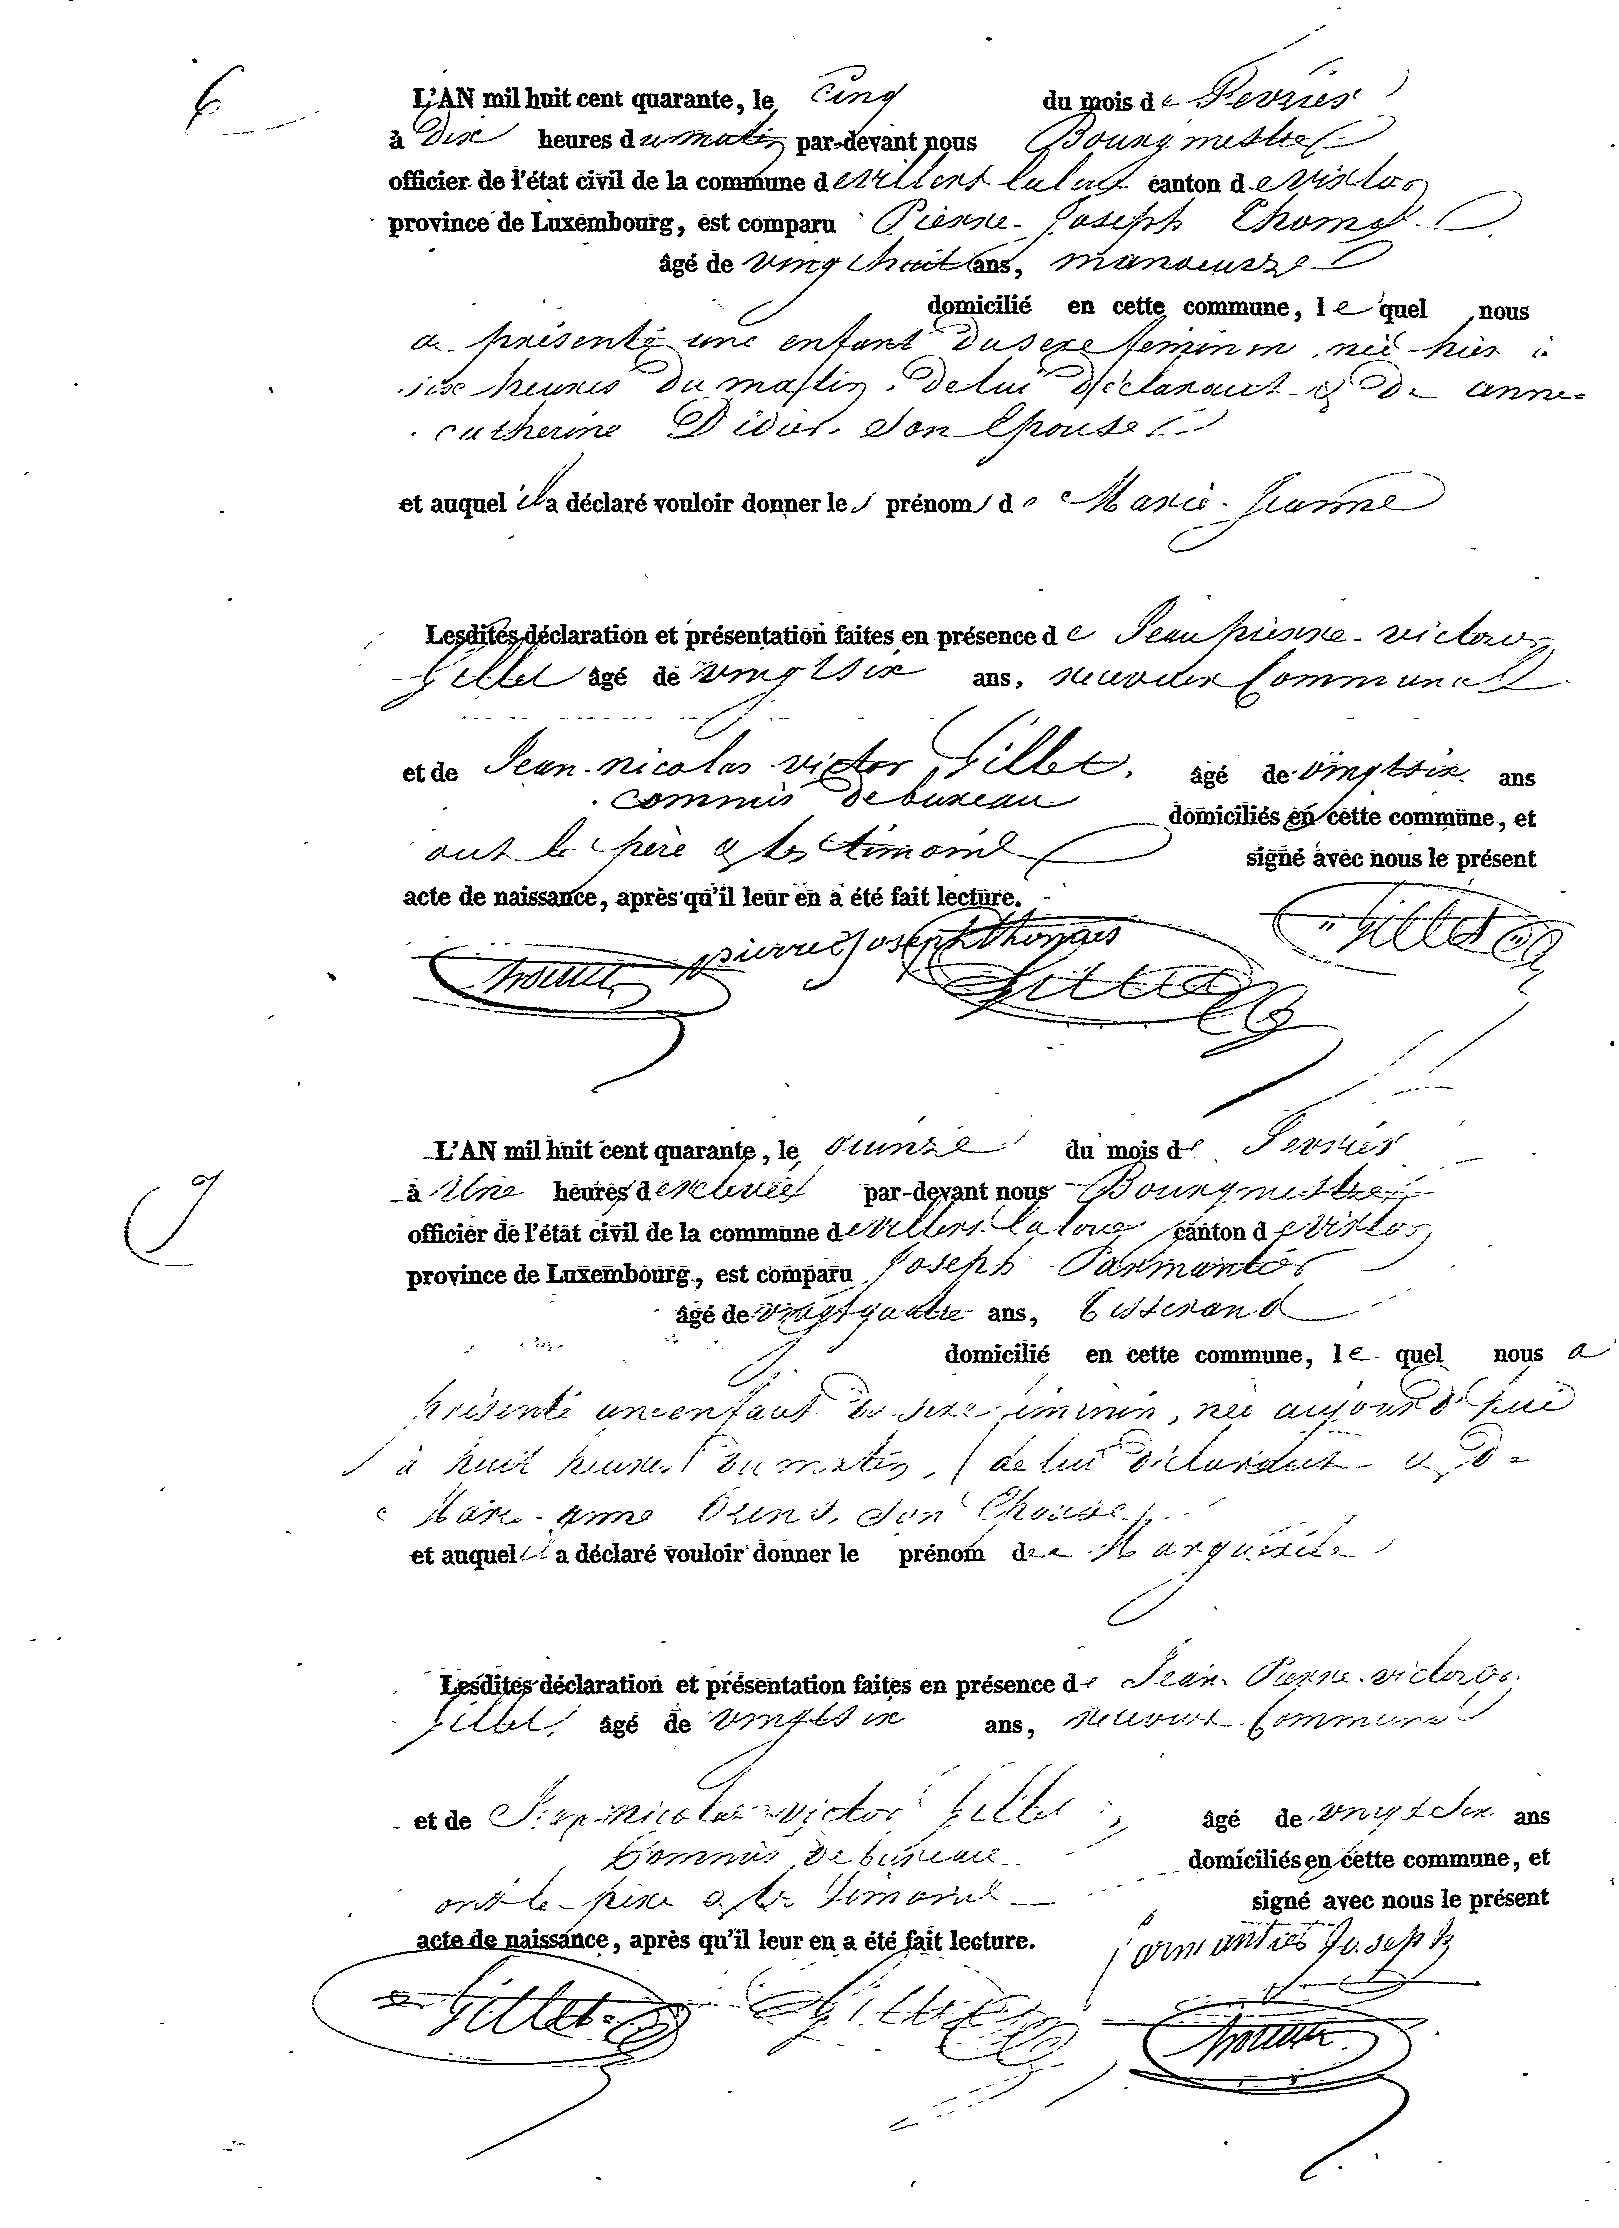 6
L'AN mil huit cent quarante, le Cinq du mois de Fevrier
à Dix heures du matin par-devant nous Bourgmestre
officier de l'état civil de la commune de villers laloue canton de virton
province de Luxembourg, est comparu Pierre-Joseph Thomas
âgé de vingthuit ans, manoeuvre
domicilié en cette commune, le quel nous
a présenté une enfant du sexe feminin, née hier à
six heures du matin, de lui déclarant et de anne-
catherine Didier son Epouse
et auquel il a déclaré vouloir donner les prénoms de Marie-Jeanne
Lesdites déclaration et présentation faites en présence de Jean pierre-victor
Gillet âgé de vingtsix ans, receveur Communal
et de Jean-nicolas victor Gillet, âgé de vingtsix ans
commis de bureau domiciliés en cette commune, et
ont le père et les timoins signé avec nous le présent
acte de naissance, après qu'il leur en a été fait lecture.
pierre joseph thomas Gillet
Gillet
L'AN mil huit cent quarante, le quinze du mois de Fevrier
à Une heures de relevée par-devant nous Bourgmestre
7
officier de l'état civil de la commune de villers laloue canton de virton
province de Luxembourg, est comparu Joseph Parmentier
âgé de vingtquatre ans, tisserand
domicilié en cette commune, le quel nous a
présenté une enfant du sexe féminin, née aujourd'hui
à huit heures du matin, de lui déclarant et de
Marie-anne son Epouse
et auquel il a déclaré vouloir donner le prénom de Marguerite
Lesdites déclaration et présentation faites en présence de Jean-Pierre-victor
Gillet, âgé de vingtsix ans, receveur Communal
et de Jean-nicolas-victor Gillet âgé de vingt six ans
Commis de bureau domiciliés en cette commune, et
ont le père et les timoins signé avec nous le présent
acte de naissance, après qu'il leur en a été fait lecture.
Parmentier Joseph
Gillet Gillet